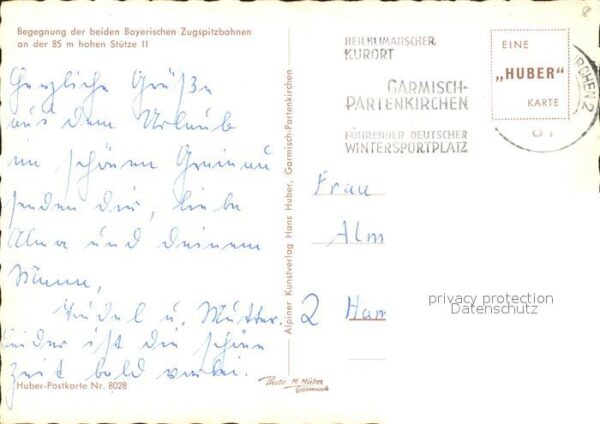 Begegnung der beiden Bayerischen Zugspitzbahnen
an der 85 m hohen Stütze II
Herzliche Grüße
aus dem Urlaub
im schönen Grainau
senden dir, liebe
Alma und deinem
Mann,
u. Mutter.
Leider ist die schöne
Zeit bald vorbei.
Huber-Postkarte Nr. 8028
Alpiner Kunstverlag Hans Huber, Garmisch-Partenkirchen
Photo H. Huber
Garmisch
HEILKLIMATISCHER
KURORT
GARMISCH-
PARTENKIRCHEN
FÜHRENDER DEUTSCHER
WINTERSPORTPLATZ
EINE
„HUBER"
KARTE
RCHEN 2
Frau
Alm
2 Ham
privacy protection
Datenschutz